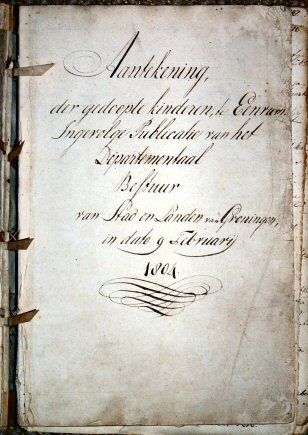 Aantekening,
der gedoopte kinderen, te Eenrum
Ingevolge Publicatie van het
Departementaal
Bestuur
van Stad en Landen van Groningen,
in dato 9 Februarij
1804